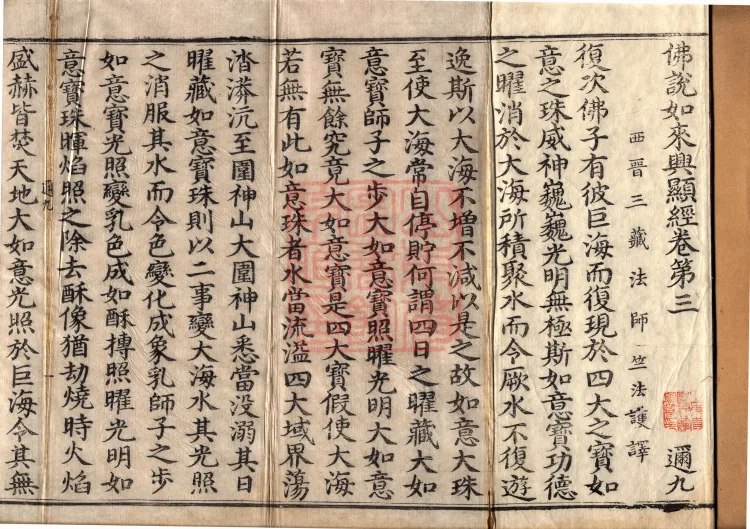 佛說如來興顯經卷第三 邇九
西晉三藏法師竺法護譯
復次佛子有彼巨海而復現於四大之寶如
意之珠威神巍巍光明無極斯如意寶功德
之曜消於大海所積聚水而令厥水不復遊
逸斯以大海不增不減以是之故如意大珠
至使大海常自停貯何謂四日之曜藏大如
意寶師子之步大如意寶照曜光明大如意
寶無餘究竟大如意寶是四大寶假使大海
若無有此如意珠者水當流溢四大域界蕩
涾漭沆至圍神山大圍神山悉當没溺其日
曜藏如意寶珠則以二事變大海水其光照
之消服其水而令色變化成象乳師子之步
如意寶光照變乳色成如酥摶照曜光明如
意寶珠暉焰照之除去酥像猶劫燒時火焰
邇九
盛赫皆焚天地大如意光照於巨海令其無